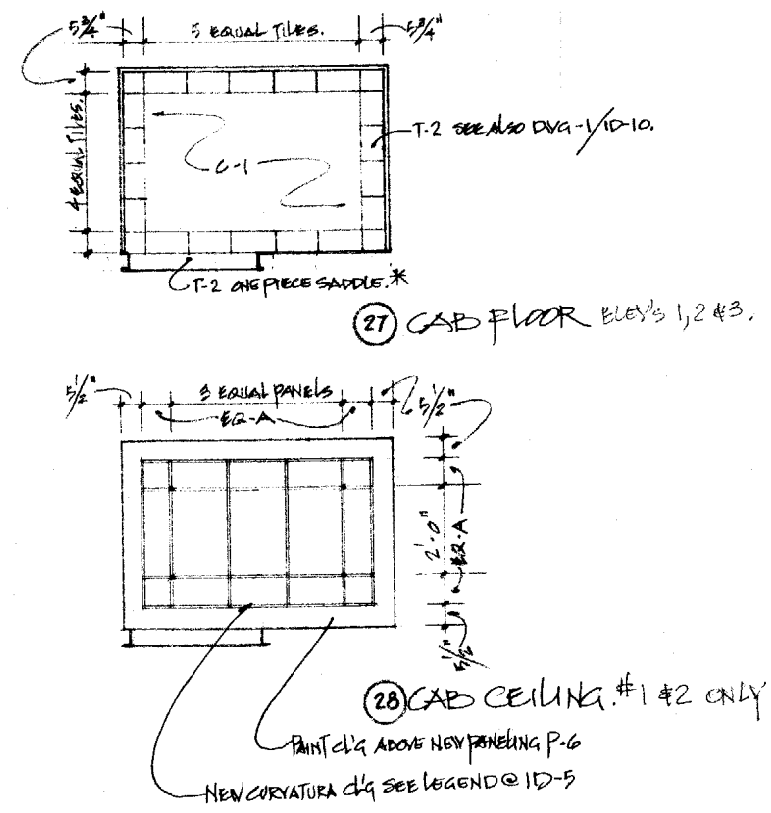 5¾" 5 EQUAL TILES. 5¾"
4 EQUAL TILES.
T-2 SEE ALSO DWG-1/ID-10.
C-1
T-2 ONE PIECE SADDLE.*
27 CAB FLOOR ELEV'S 1, 2 & 3.
5½" 3 EQUAL PANELS 5½"
EQ-A
2'-0"
EQ-A
5½"
28 CAB CEILING. #1 & 2 ONLY
PAINT CL'G ABOVE NEW PANELING P-6
NEW CURVATURA CL'G SEE LEGEND @ ID-5